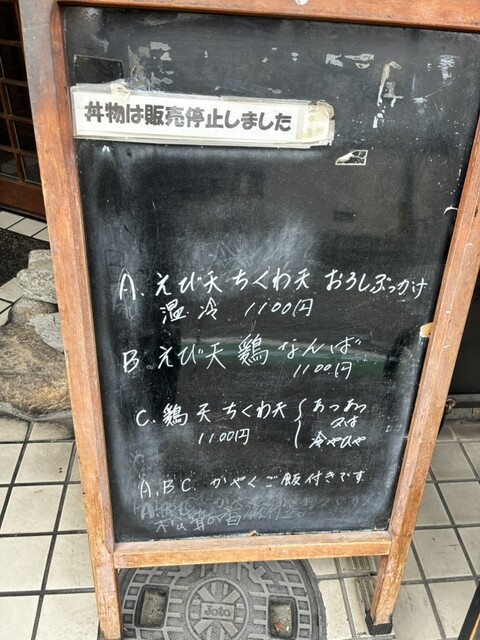 丼物は販売停止しました
A. えび天 ちくわ天 おろしぶっかけ
温 冷 1100円
B. えび天 鶏 なんば
1100円
C. 鶏天 ちくわ天
1100円
あつあつ
又は
冷やひや
A, B, C. かやくご飯付きです
Joto